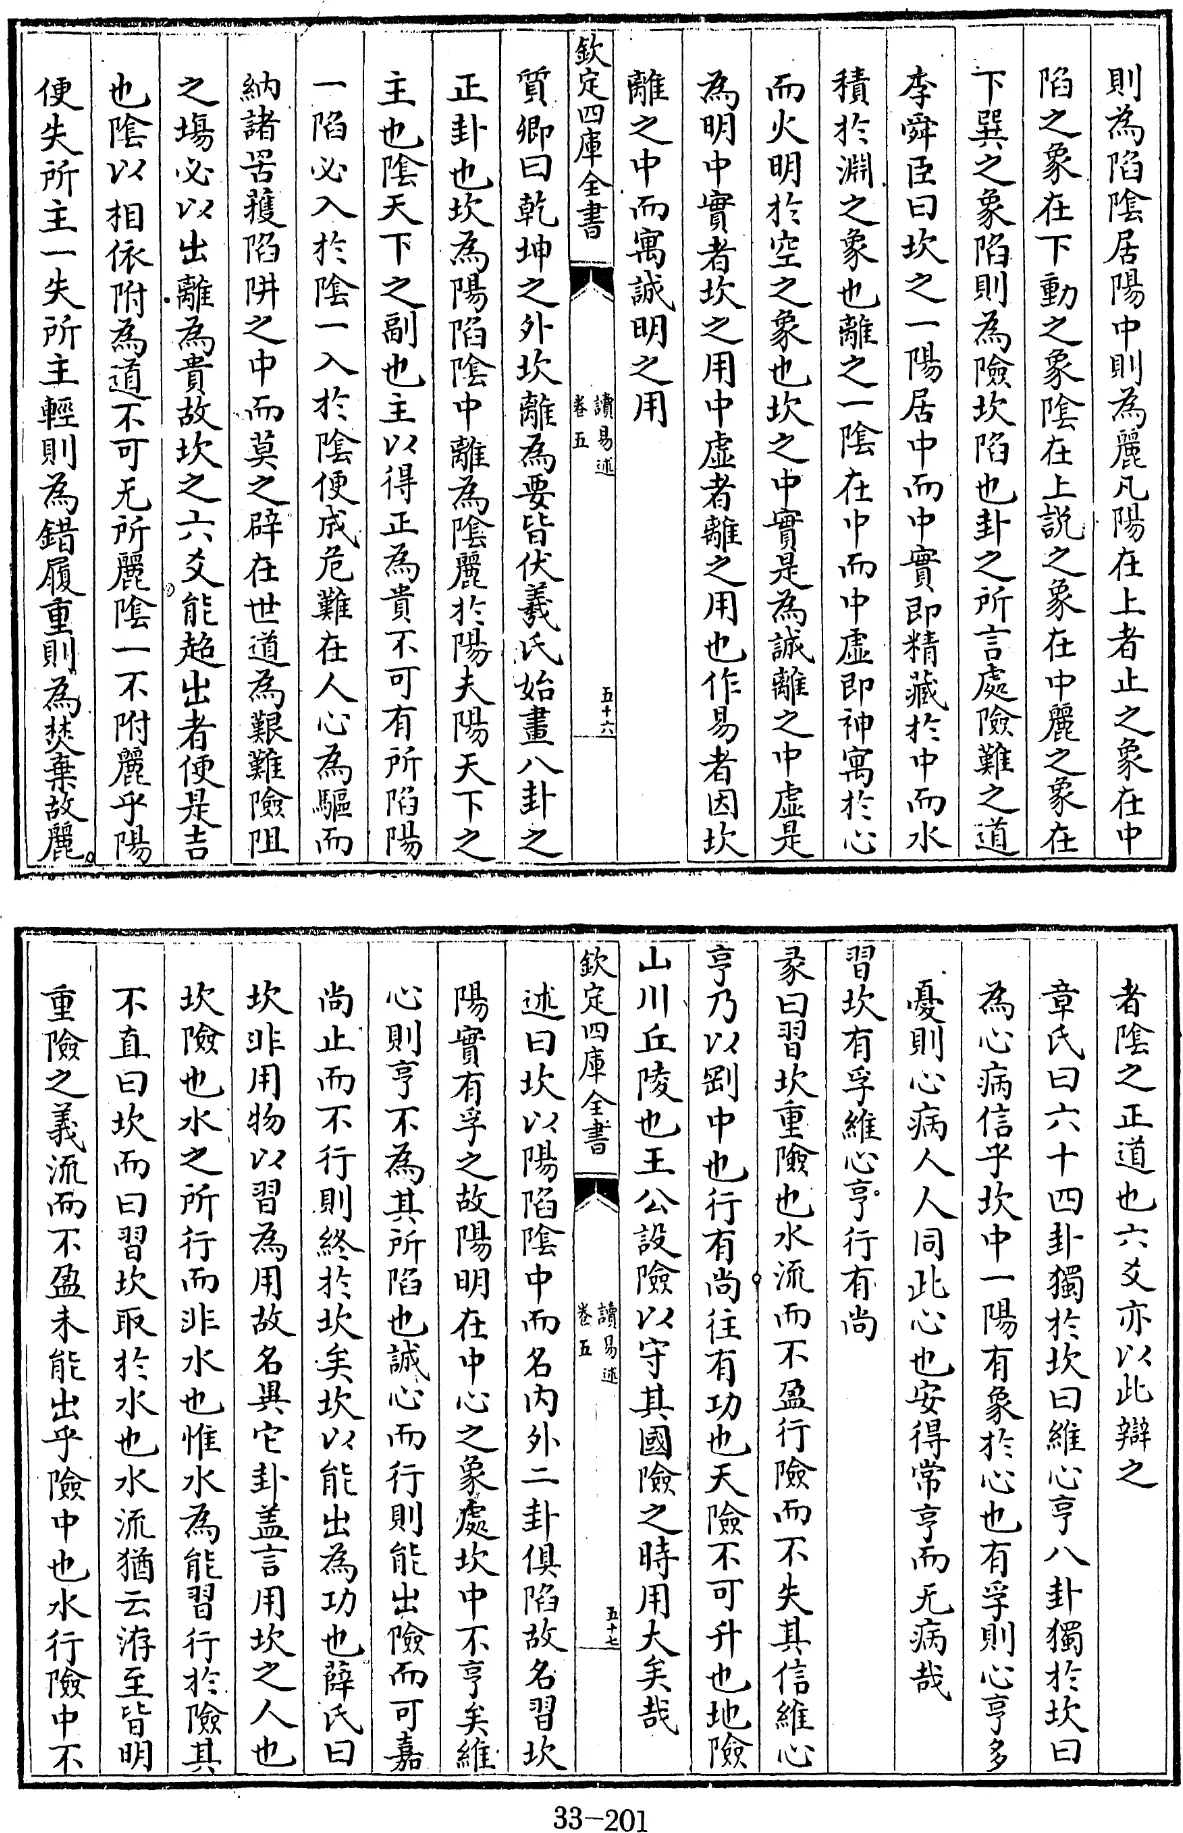 則為陷陰居陽中則為麗凡陽在上者止之象在中
陷之象在下動之象陰在上說之象在中麗之象在
下巽之象陷則為險坎陷也卦之所言處險難之道
李舜臣曰坎之一陽居中而中實即精藏於中而水
積於淵之象也離之一陰在中而中虛即神寓於心
而火明於空之象也坎之中實是為誠離之中虛是
為明中實者坎之用中虛者離之用也作易者因坎
離之中而寓誠明之用
欽定四庫全書
讀易述
卷五
五十六
質卿曰乾坤之外坎離為要皆伏羲氏始畫八卦之
正卦也坎為陽陷陰中離為陰麗於陽夫陽天下之
主也陰天下之副也主以得正為貴不可有所陷陽
一陷必入於陰一入於陰便成危難在人心為驅而
納諸罟擭陷阱之中而莫之辟在世道為艱難險阻
之塲必以出離為貴故坎之六爻能超出者便是吉
也陰以相依附為道不可无所麗陰一不附麗乎陽
便失所主一失所主輕則為錯履重則為焚棄故麗
者陰之正道也六爻亦以此辯之
章氏曰六十四卦獨於坎曰維心亨八卦獨於坎曰
為心病信乎坎中一陽有象於心也有孚則心亨多
憂則心病人人同此心也安得常亨而无病哉
習坎有孚維心亨行有尚
彖曰習坎重險也水流而不盈行險而不失其信維心
亨乃以剛中也行有尚往有功也天險不可升也地險
山川丘陵也王公設險以守其國險之時用大矣哉
欽定四庫全書
讀易述
卷五
五十七
述曰坎以陽陷陰中而名內外二卦俱陷故名習坎
陽實有孚之故陽明在中心之象處坎中不亨矣維
心則亨不為其所陷也誠心而行則能出險而可嘉
尚止而不行則終於坎矣坎以能出為功也薛氏曰
坎非用物以習為用故名異它卦盖言用坎之人也
坎險也水之所行而非水也惟水為能習行於險其
不直曰坎而曰習坎取於水也水流猶云洊至皆明
重險之義流而不盈未能出乎險中也水行險中不
33-201